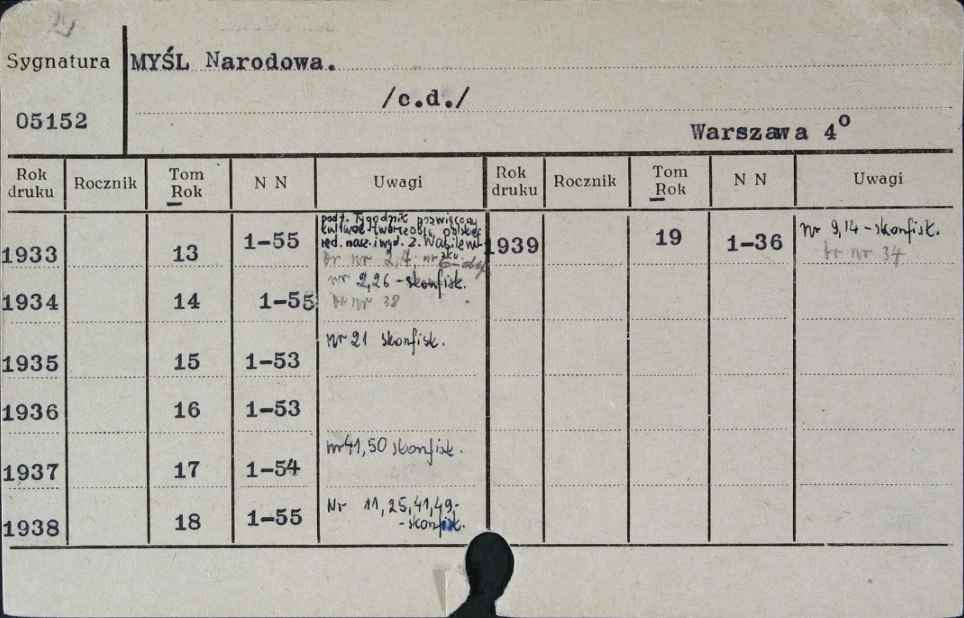 Sygnatura MYŚL Narodowa.
/c.d./
05152
Warszawa 4°
Rok druku Rocznik Tom Rok N N Uwagi Rok druku Rocznik Tom Rok N N Uwagi
podt. Tygodnik poświęcony
kulturze twórczości polskiej
red. nacz. i wyd. Z. Wasilewski
1933 13 1-55 br nr 2,4 1939 19 1-36 nr 9,14 - skonfisk.
br nr 34
1934 14 1-55 nr 2,26 - skonfisk.
br nr 38
1935 15 1-53 nr 21 skonfisk.
1936 16 1-53
1937 17 1-54 nr 41,50 skonfisk.
1938 18 1-55 Nr 11, 25, 41, 49,-
- skonfisk.